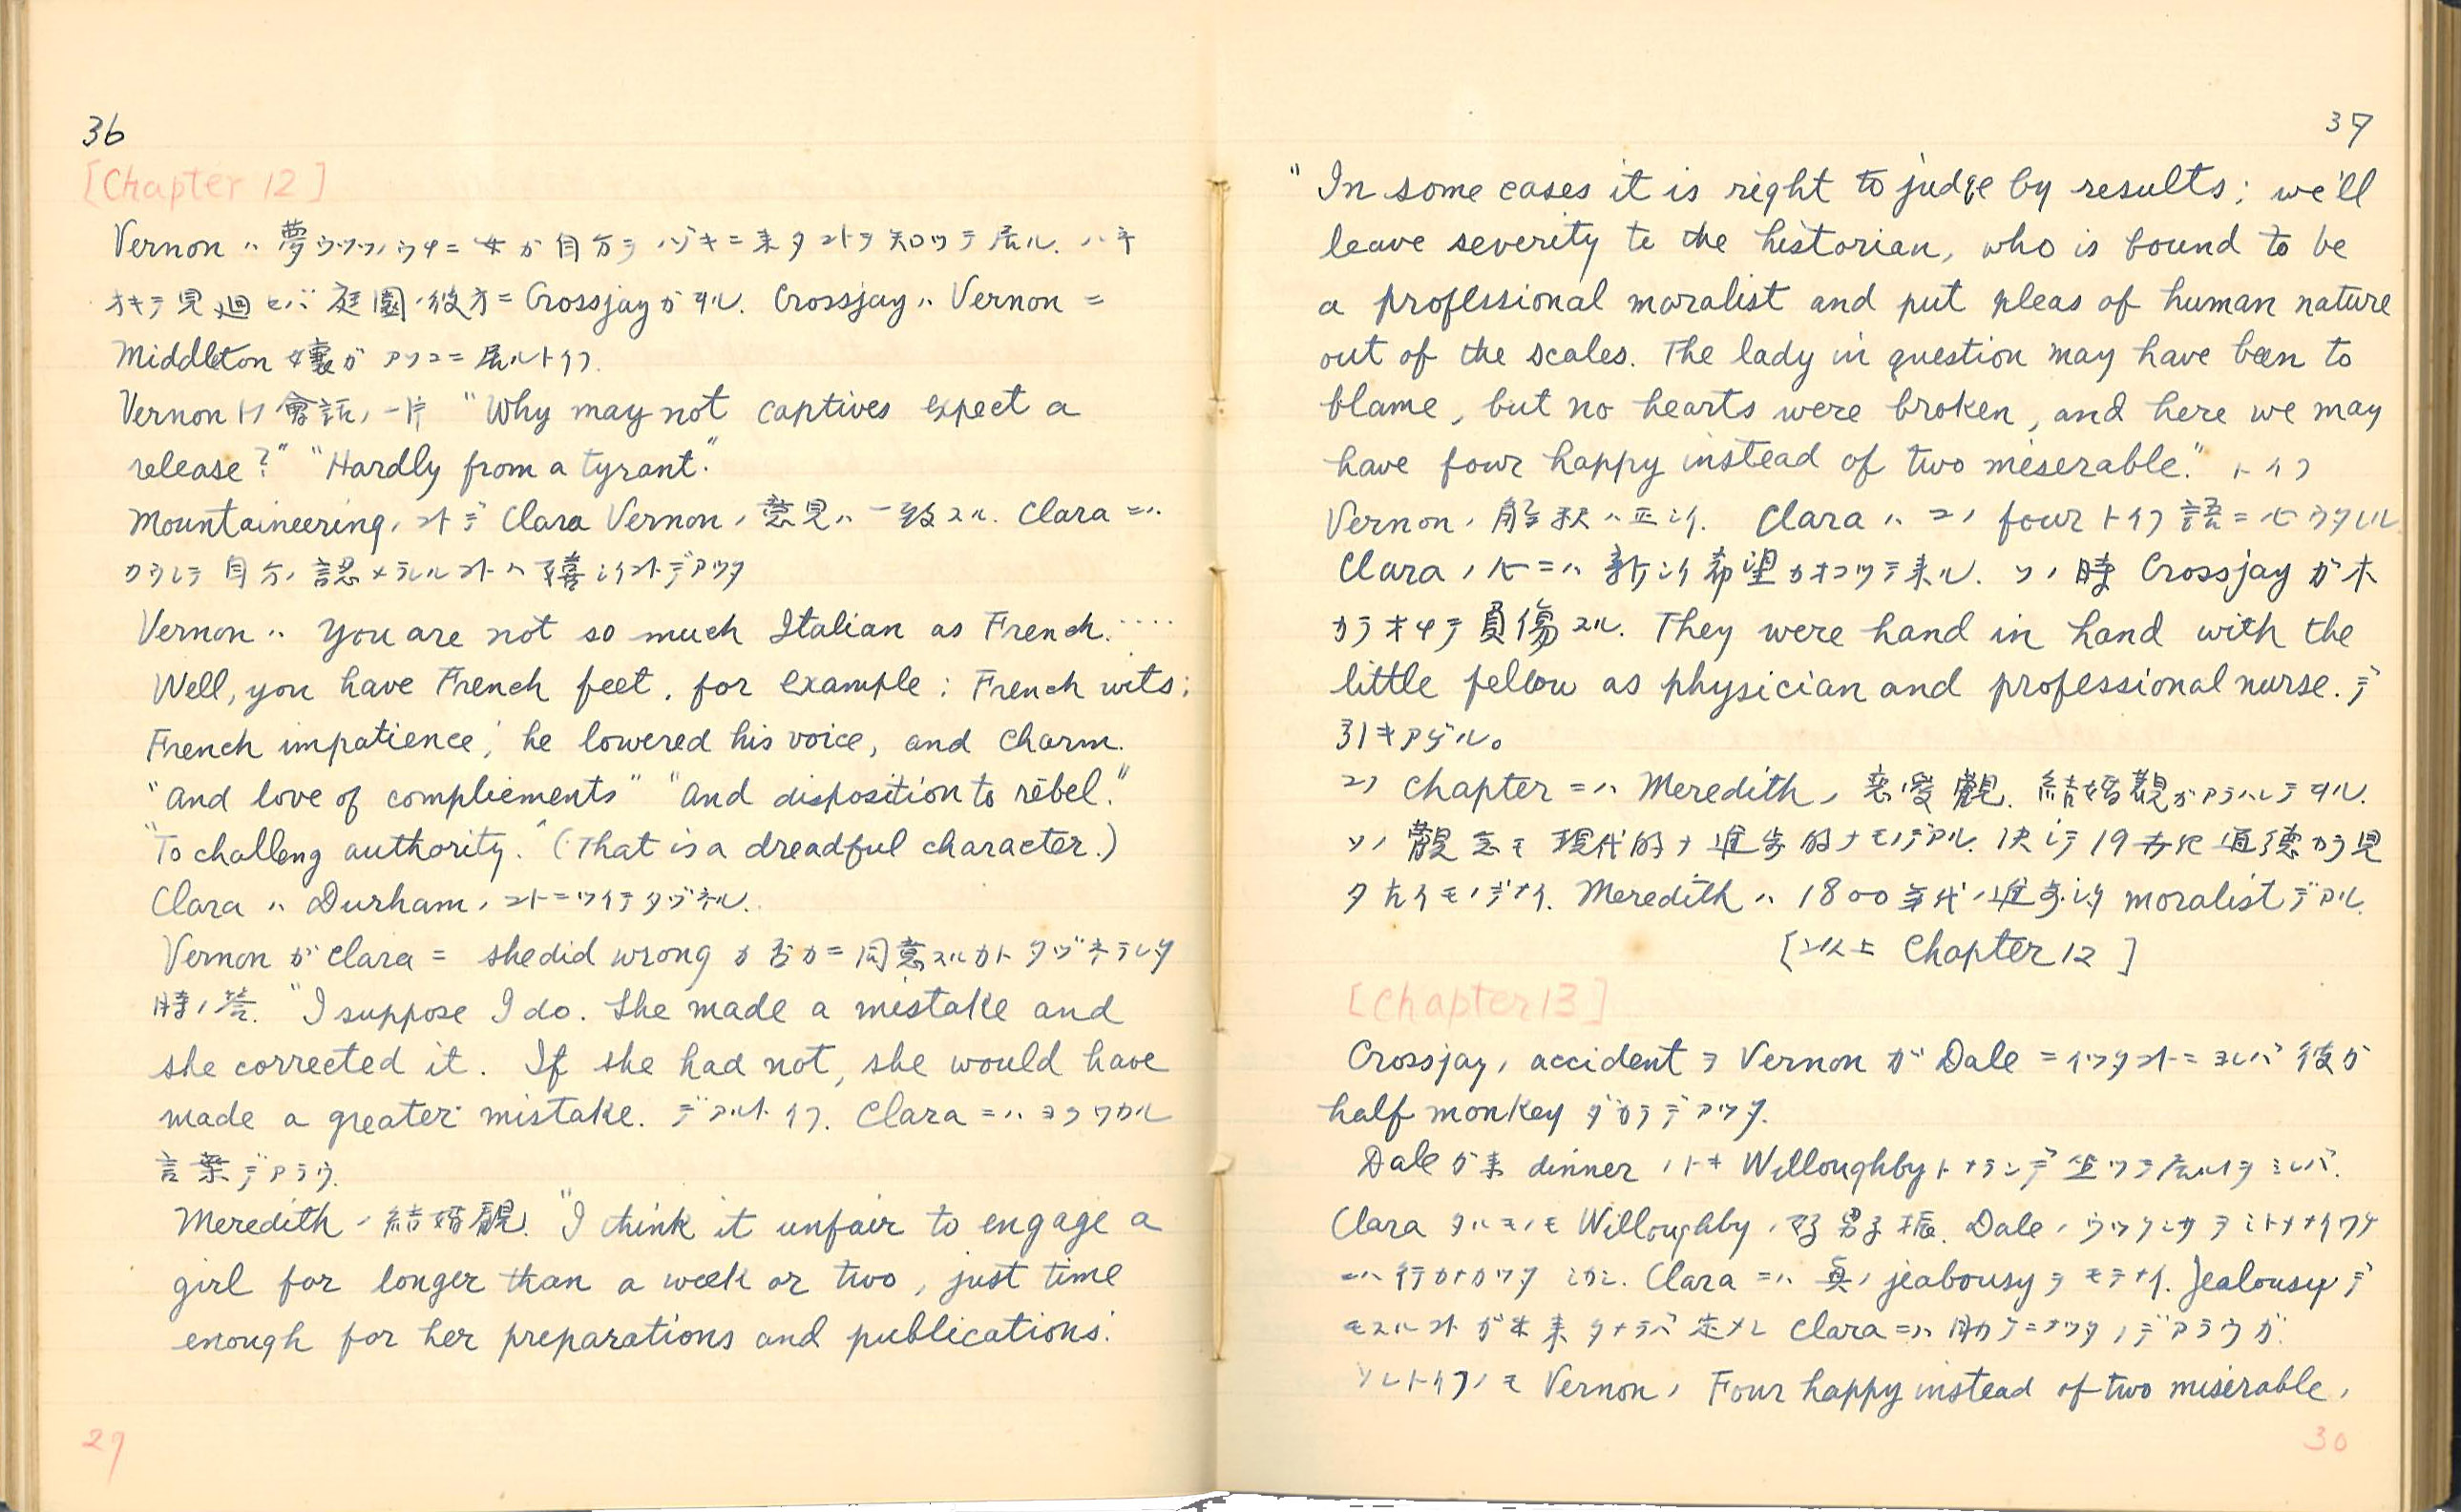 36
[Chapter 12]
Vernon ハ 夢ウツツノウチニ 女ガ自分ヲ ノゾキニ来タコトヲ知ッテ居ル. ハネ
オキテ見廻セバ 庭園ノ彼方ニ Crossjay ガヰル. Crossjay ハ Vernon ニ
Middleton 嬢ガ アソコニ居ルトイフ.
Vernon トノ會話ノ一片 "Why may not captives expect a
release?" "Hardly from a tyrant."
Mountaineering ノコトデ Clara Vernon ノ意見ハ一致スル. Clara ニハ
カウシテ自分ノ認メラレルコトハ嬉シイコトデアッタ
Vernon ハ You are not so much Italian as French. ....
Well, you have French feet, for example: French wits;
French impatience; he lowered his voice, and charm.
"And love of compliements" "And disposition to rebel."
"To challeng authority." (That is a dreadful character.)
Clara ハ Durham ノコトニツイテタヅネル.
Vernon ガ Clara ニ she did wrong カ否カニ同意スルカトタヅネラレタ
時ノ答. "I suppose I do. She made a mistake and
she corrected it. If she had not, she would have
made a greater mistake. デアルトイフ. Clara ニハヨクワカル
言葉デアラウ.
Meredith ノ結婚觀. "I think it unfair to engage a
girl for longer than a week or two, just time
enough for her preparations and publications."
29
37
"In some cases it is right to judge by results; we'll
leave severity to the historian, who is bound to be
a professional moralist and put pleas of human nature
out of the scales. The lady in question may have been to
blame, but no hearts were broken, and here we may
have four happy instead of two miserable." トイフ
Vernon ノ解釈ハ正シイ. Clara ハコノ four トイフ語ニ心ウタレル
Clara ノ心ニハ新シイ希望ガオコッテ来ル. ソノ時 Crossjay ガ木
カラオチテ負傷スル. They were hand in hand with the
little fellow as physician and professional nurse. デ
引キアゲル。
コノ Chapter ニハ Meredith ノ恋愛觀. 結婚觀ガアラハレテヰル.
ソノ觀念モ現代的ナ進歩的ナモノデアル. 決シテ19世紀道德カラ見
タ古イモノデナイ. Meredith ハ 1800年代ノ進歩シタ moralist デアル.
[以上 Chapter 12]
[Chapter 13]
Crossjay ノ accident ヲ Vernon ガ Dale ニイッタコトニヨレバ彼ガ
half monkey ダカラデアッタ.
Dale ガ来 dinner ノトキ Willoughby トナランデ坐ッテ居ルノヲミレバ.
Clara タルモノモ Willoughby ノ好男子振. Dale ノウツクシサヲミトメナイワケ
ニハ行カナカッタ シカシ. Clara ニハ真ノ jeabousy ヲモテナイ. Jealousy デ
モスルコトガ出来タナラバ定メシ Clara ニハ助ケニナッタノデアラウガ.
ソレトイフノモ Vernon ノ Four happy instead of two miserable ノ
30